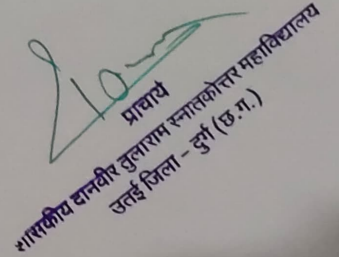 प्राचार्य
शासकीय दानवीर तुलाराम स्नातकोत्तर महाविद्यालय
उतई जिला - दुर्ग (छ.ग.)